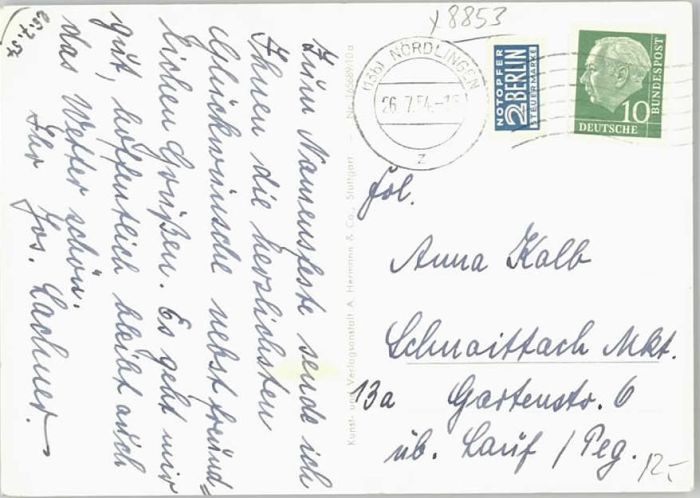 25.7.57
Zum Namensfeste sende ich
Ihnen die herzlichsten
Glückwünsche nebst freund=
lichen Grüßen. Es geht mir
gut, hoffentlich bleibt auch
das Wetter schön.
Ihr
Jos. Lachner.
Kunst- und Verlagsanstalt A. Hermann & Co., Stuttgart
y8853
(13b) NÖRDLINGEN
26.7.54
z
NOTOPFER
2 BERLIN
STEUERMARKE
10
DEUTSCHE
BUNDESPOST
Frl.
Anna Kalb
Schnaittach Mkt.
13a Gartenstr. 6
üb. Lauf / Peg.
12.-